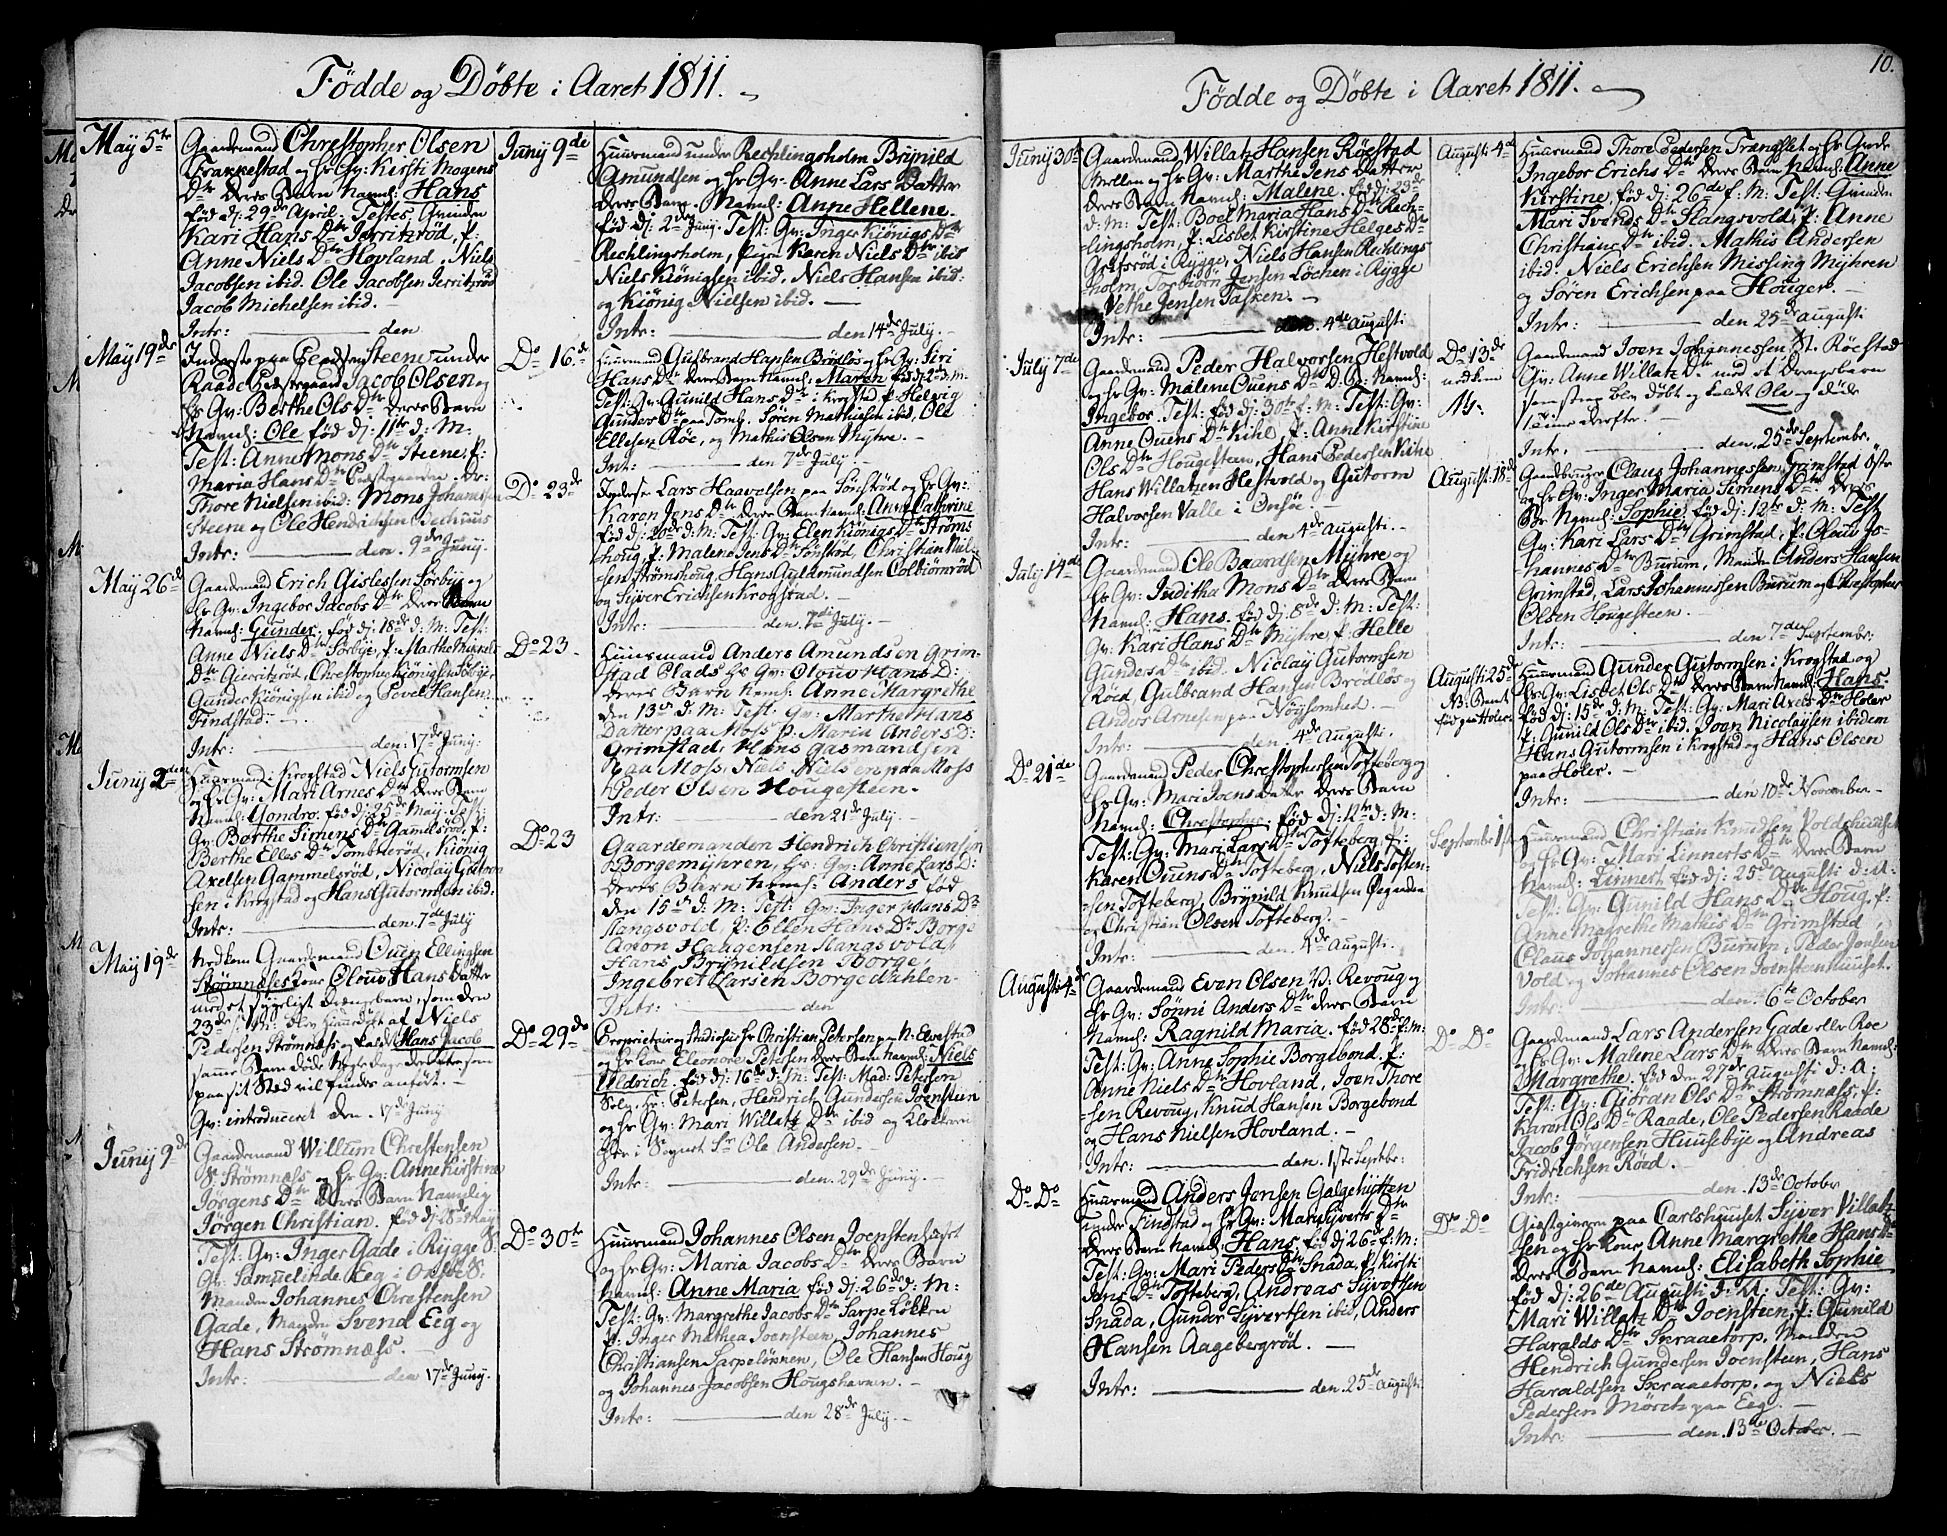 Fødde og Døbte i Aaret 1811.
May 5te
Gaardemand Chrestopher Olsen
Frakkestad og hs Gv: Kirsti Mogens
Dtr Deres Barn Namnl: Hans
fød dj: 29de April. Testes. Gvinden
Kari Hans Dtr Jerritzrød, P:
Anne Niels Dtr Hovland, Niels
Jacobsen ibid. Ole Jacobsen Jerritzrød
Jacob Michelsen ibid.
Intr: den
May 19de
Inderste paa Steene under
Raade Præstegaard Jacob Olsen og
hs Gv: Berthe Ols Dtr Deres Barn
Namnl: Ole fød dj: 11te d: M:
Test: Anne Mons Dtr Steene, P:
Maria Hans Dtr Præstegaarden Dr:
Thore Nielsen ibid: Mons Johannesen
Steene og Ole Hendrichsen Bechhuus
Intr: den 9de Juny.
May 26de
Gaardemand Erich Gislesen Sørbye og
hs Gv: Ingebor Jacobs Dtr Deres Barn
Namnl: Gunder. fød dj: 18de d: M: Test:
Anne Niels Dtr Sørbye, P: Marthe Michels
Dtr Gierritzrød, Chrestopher Kiönigsen Sørbye
Gunder Kiönigsen ibid og Povel Hansen
Findstad.
Intr: den 17de Juny.
Juny 2den
Huusmand i Krogstad Niels Gutormsen
og hs Gv: Mari Arnes Dtr Deres Barn
Namnl: Gondro. fød dj: 25de May. Test:
Gv: Berthe Simens Dtr Gamelsrød, P:
Berthe Elles Dtr Tomblerød, Kiönig
Axelsen Gammelsrød, Nicolay Gutorm
sen i Krogstad og Hans Gutormsen ibid.
Intr: den 7de July
May 19de
nedkom Gaardemand Ouen Ellingsen
Strømnæses kone Olouv Hans Datter
med et sygeligt Drengebarn, som den
23de s: M: blev hiemdøbt af Niels
Pedersen Strømnæss og kaldt Hans Jacob
samme Barn døde Nogle dage derefter som
paa sit Sted vil findes anført.
Gv: introduceret den 17de Juny
Juny 9de
Gaardemand Willum Chrestensen
S: Strømnæss og hs Gv: Anne Kirstine
Jörgens Dtr Deres Barn Namnlig
Jörgen Christian. fød dj: 28de May
Test: Gv: Inger Gade i Rygge S:
Gv: Samueline Eeg i Onsöe S:
Manden Johannes Chrestensen
Gade, Manden Svend Eeg og
Hans Strömnæss.
Intr: den 17de Juny.
Juny 9de
Huusmand under Rechlingsholm Brynild
Amundsen og hs Gv: Anne Lars Datter
Deres Barn. Namnl: Anne Hellene.
fød dj: 2den Juny. Test: Gv: Inger Kiönigs Dtr
Rechlingsholm, Pigen Karen Niels Dtr ibid
Niels Kiönigsen ibid, Niels Hansen ibid:
og Kiönig Nielsen ibid.
Intr: den 14de July.
Do 16de
Huusmand Gulbrand Hansen Brødløs og hs Gv: Siri
Hans Dtr Deres Barn Namnl: Maren fød dj: 2de d: M:
Test: Gv: Gunild Hans Dtr i Krogstad, P: Helvig
Gunders Dtr paa Tomb. Søren Mathiesen ibid, Ole
Ellefsen Røe, og Mathis Olsen Myhre.
Intr: den 7de July
Do 23de
Inderste Lars Haavelsen paa Sønstød og hs Gv:
Karen Jens Dtr Deres Barn Namnl: Anne Cathrine
fød dj: 20de d: M: Test: Gv: Elen Kiönigs Dtr Ströms
houg, P: Malene Jens Dtr Sønstød, Christian Niel
sen Strömshoug, Hans Guldmundsen Colbiörnrød
og Syver Erichsen Krogstad.
Intr: den 7de July.
Do 23
Huusmand Anders Amundsen Grim-
stad Plads hs Gv: Olouv Hans D:
deres Barn Neml: Anne Margrethe
den 13de d: M: Test: Gv: Marthe Hans
Datter paa Moss P: Maria Anders D:
Grimstad, Hans Gasmandsen
paa Moss, Niels Nielsen paa Moss
Peder Olsen Hougesteen.
Intr: den 21de July
Do 23
Gaardemanden Hendrich Christiansen
Borgemyhren, hs: Gv: Anne Lars D:
deres Barn Neml: Anders fød
den 15de d: M: Test: Gv: Inger Hans D:
Slangsvold, P: Ellen Hans D: Borge
Aron Haagensen Slangsvold,
Hans Brynildsen Borge,
Ingebret Larsen Borgedahlen.
Intr: den
Do 29de
Proprietair og Studiosus hr Christian Petersen paa N: Elvestad
og hs kone Eleonore Petersen Deres Barn Namnl: Niels
Uldrich. fød dj: 16de d: M: Test: Mad: Petersen
Solg, hr: Petersen, Hendrich Gundersen Joensteen
og hs Gv: Mari Willatz Dtr ibid og Klokkeren
her i Sognet Sr Ole Andersen.
Intr: den 29de Juny.
Do 30te
Huusmand Johannes Olsen Joensteenhuset
og hs Gv: Maria Jacobs Dtr Deres Barn
Namnl: Anne Maria fød dj: 26de d: M:
Test: Gv: Margrethe Jacobs Dtr Sarpe Løkken
P: Inger Mathea Joensteen, Johannes
Christiansen Sarpelönnen, Ole Hansen Houg
og Johannes Jacobsen Hougshavnen.
Intr: den 28de July.
10.
Fødde og Døbte i Aaret 1811.
Juny 30te
Gaardemand Willatz Hansen Røestad
Mellem og hs Gv: Marthe Jens Datter
Deres Barn Namnl: Malene fød dj: 23de
d: M: Test: Boel Maria Hans Dtr Rech-
lingsholm, P: Lisbet Kirstine Helges Dtr
Grefsrød i Rygge, Niels Hansen Rechlings
holm, Torbiörn Jensen Löchen i Rygge
Vethe Jensen Tasken.
Intr: den 4de Augusti
July 7de
Gaardemand Peder Halvorsen Hestvold
og hs Gv: Malene Ouens Dtr D: B: Namnl:
Ingebor. Test: fød dj: 30te f: M: Test: Gv:
Anne Ouens Dtr Kihl, P: Anne Kirstine
Ols Dtr Hougesteen, Hans Pedersen Kihl
Hans Willatzen Hestvold og Gutorm
Halvorsen Valle i Onsøe.
Intr: den 4de Augusti.
July 14de
Gaardemand Ole Baardsen Myhre og
hs Gv: Juditha Mons Dtr Deres Barn
Namnl: Hans. fød dj: 8de d: M: Test:
Gv: Kari Hans Dtr Myhre, P: Helle
Gunders Dtr ibid. Niclay Gutormsen
Röed, Gulbrand Hansen Brødløs og
Anders Arnesen paa Nöysomhed.
Intr: den 4de Augusti.
Do 21de
Gaardemand Peder Chrestophersen Tofteberg og
hs Gv: Mari Joens Datter Deres Barn
Namnl: Chrestopher. fød dj: 12te d: M:
Test: Gv: Mari Lars Dtr Tofteberg, P:
Karen Ouens Dtr Tofteberg, Niels Torsten-
sen Tofteberg, Brynild Knudsen Øegarden
og Christian Olsen Tofteberg.
Intr: den 4de Augusti.
Augusti 4de
Gaardemand Even Olsen V. Revoug og
hs Gv: Sønni Anders Dtr Deres Barn
Namnl: Ragnild Maria. fød 28de f: M:
Test: Gv: Anne Sophie Borgebond. P:
Anne Niels Dtr Hovland, Joen Thore
sen Revoug, Knud Hansen Borgebond
og Hans Nielsen Hovland.
Intr: den 1ste Septbr:
Do Do
Huusmand Anders Jensen Galgehytten
under Findstad og hs Gv: Mari Syverts Dtr
Deres Barn Namnl: Hans fød dj: 26de f: M:
Test: Gv: Mari Peders Dtr Snada, P: Kirsti
Jans Dtr Tofteberg, Andreas Syvertsen
Snada, Gunder Syvertsen ibid, Anders
Hansen Aagebergrød.
Intr: den 25de Augusti
Augusti 4de
Huusmand Thore Pedersen Trangslet og hs Gvde
Ingebor Erichs Dtr Deres Barn Namnl: Anne
Kirstine, fød dj: 26de f: M: Test: Gvinden
Mari Svends Dtr Slangsvold, P: Anne
Christians Dtr ibid. Mathis Andersen
ibid. Niels Erichsen Missing Myhren
og Søren Erichsen paa Houger.
Intr: den 25de Augusti
Do 13de
nedkom
Gaardemand Joen Johannessen St. Røestad
Gv: Anne Willatz Dtr med et Drengebarn
som strax blev døbt og kaldt Ole og døde
1 time derefter.
Intr: den 25de Septembr.
August 18de
Gaardbruger Claus Johannessen, Grimstad Østr
og hs Gv: Inger Maria Simens Dtr Deres
Br: Namnl: Sophie, fød dj: 12te d: M: Test
Gv: Kari Lars Dtr Grimstad, P: Olouv Jo-
hannes Dtr Burum, Manden Anders Hansen
Grimstad, Lars Johannissen Burum og Chrestopher
Olsen Hougesteen.
Intr: den 7de Septembr:
Augusti 25de
NB: Barnet
fød paa Holer
Huusmand Gunder Gutormsen i Krogstad og
hs Gv: Lisbet Ols Dtr Deres Barn Namnl: Hans
fød dj: 15de d: M: Test: Gv: Mari Axels Dtr Holer
P: Gunild Ols Dtr ibid. Joen Nicolaysen ibidem
Hans Gutormsen i Krogstad og Hans Olsen
paa Holer.
Intr: den 10de November
Septembr 1ste
Huusmand Christian Knudsen Voldshuuset
og hs Gv: Mari Linnerts Dtr Deres Barn
Namnl: Linnert fød dj: 25de Augusti d: A:
Test: Gv: Gunild Hans Dtr Houg, P:
Anne Magrethe Mathis Dtr Grimstad,
Claus Johannessen Burum, Peder Jonsen
Vold og Johannes Olsen Joensteenhuuset.
Intr: den 6te October
Do Do
Gaardemand Lars Andersen Gade eller Roe
og hs Gv: Malene Lars Dtr Deres Barn Namnl:
Margrethe. fød den 27de Augusti d: A:
Test: Gv: Giøran Ols Dtr Strømnæss, P:
Karen Ols Dtr Raade, Ole Pedersen Raade
Jacob Jørgensen Huusebye og Andreas
Fridrichsen Røed.
Intr: den 13de October
Do Do
Giæstgiveren paa Carlshuuset Syver Villatz
sen og hs kone Anne Margrethe Hans Dtr
Deres Barn Namnl: Elisabeth Sophie
fød dj: 26de Augusti d: A: Test: Gv:
Mari Willatz Dtr Joensteen, P: Gunild
Haralds Dtr Skraaetorp, Manden
Hendrich Gundersen Joensteen, Hans
Haraldsen Skraaetorp, og Niels
Pedersen Mørch paa Eeg.
Intr: den 13de October.